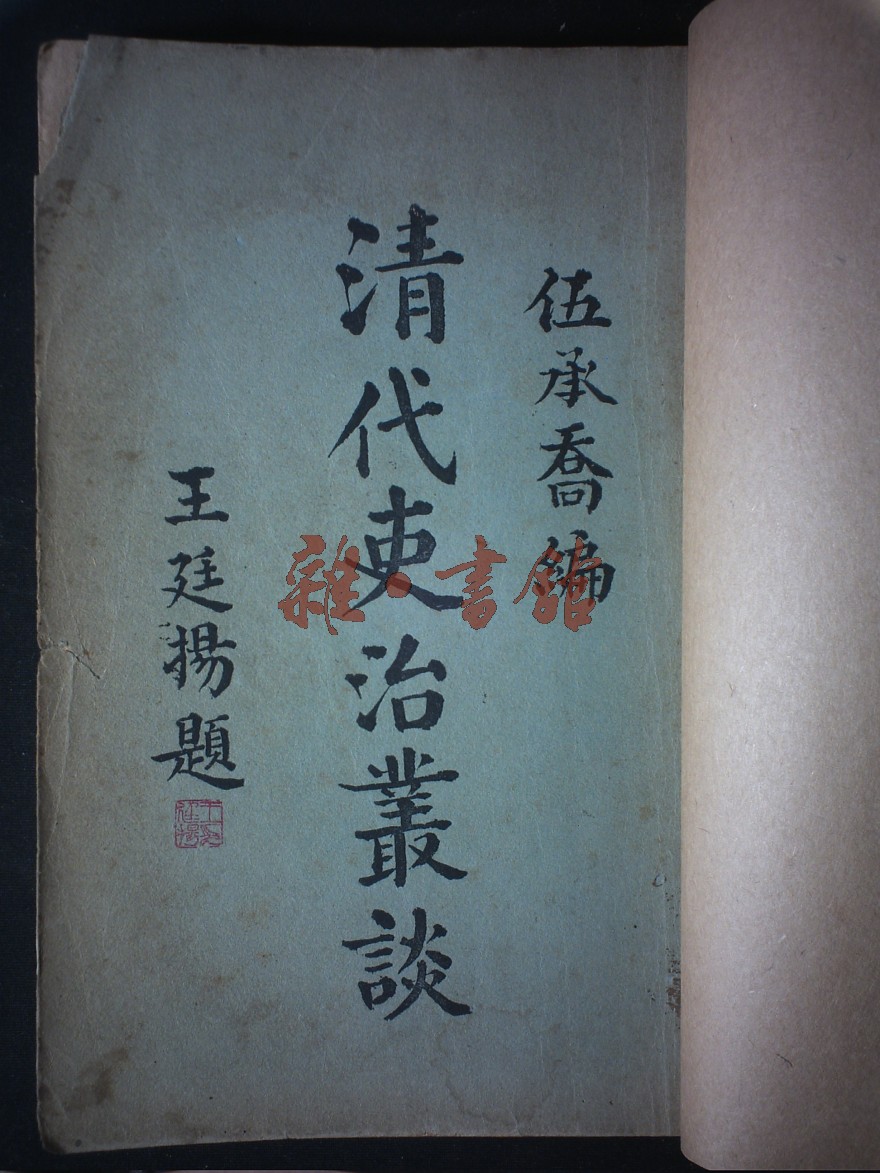 伍承喬編
清代吏治叢談
王廷揚題
雜·書館